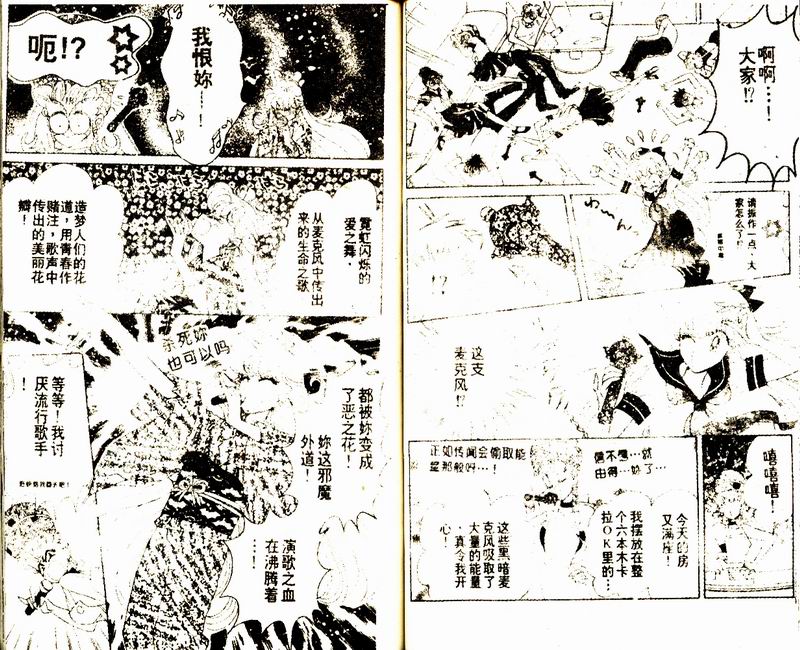 啊啊…！
大家!?
请振作一点，大
家怎么了!?
!?
这支
麦克风!?
嘻嘻嘻！
今天的房
又满座！
我摆放在整
个六本木卡
拉OK里的…
信不信…就
由得…妳了…
这些黑暗麦
克风吸取了
大量的能量
，真令我开
心！
正如传闻会偷取能
量那般吗…！
我恨妳…！
呃!?
霓虹闪烁的
爱之舞，
从麦克风中传出
来的生命之歌
造梦人们的花
道，用青春作
赌注，歌声中
传出的美丽花
瓣！
杀死妳
也可以吗
都被妳变成
了恶之花！
妳这邪魔
外道！
演歌之血
在沸腾着
…！
等等！我讨
厌流行歌手
！